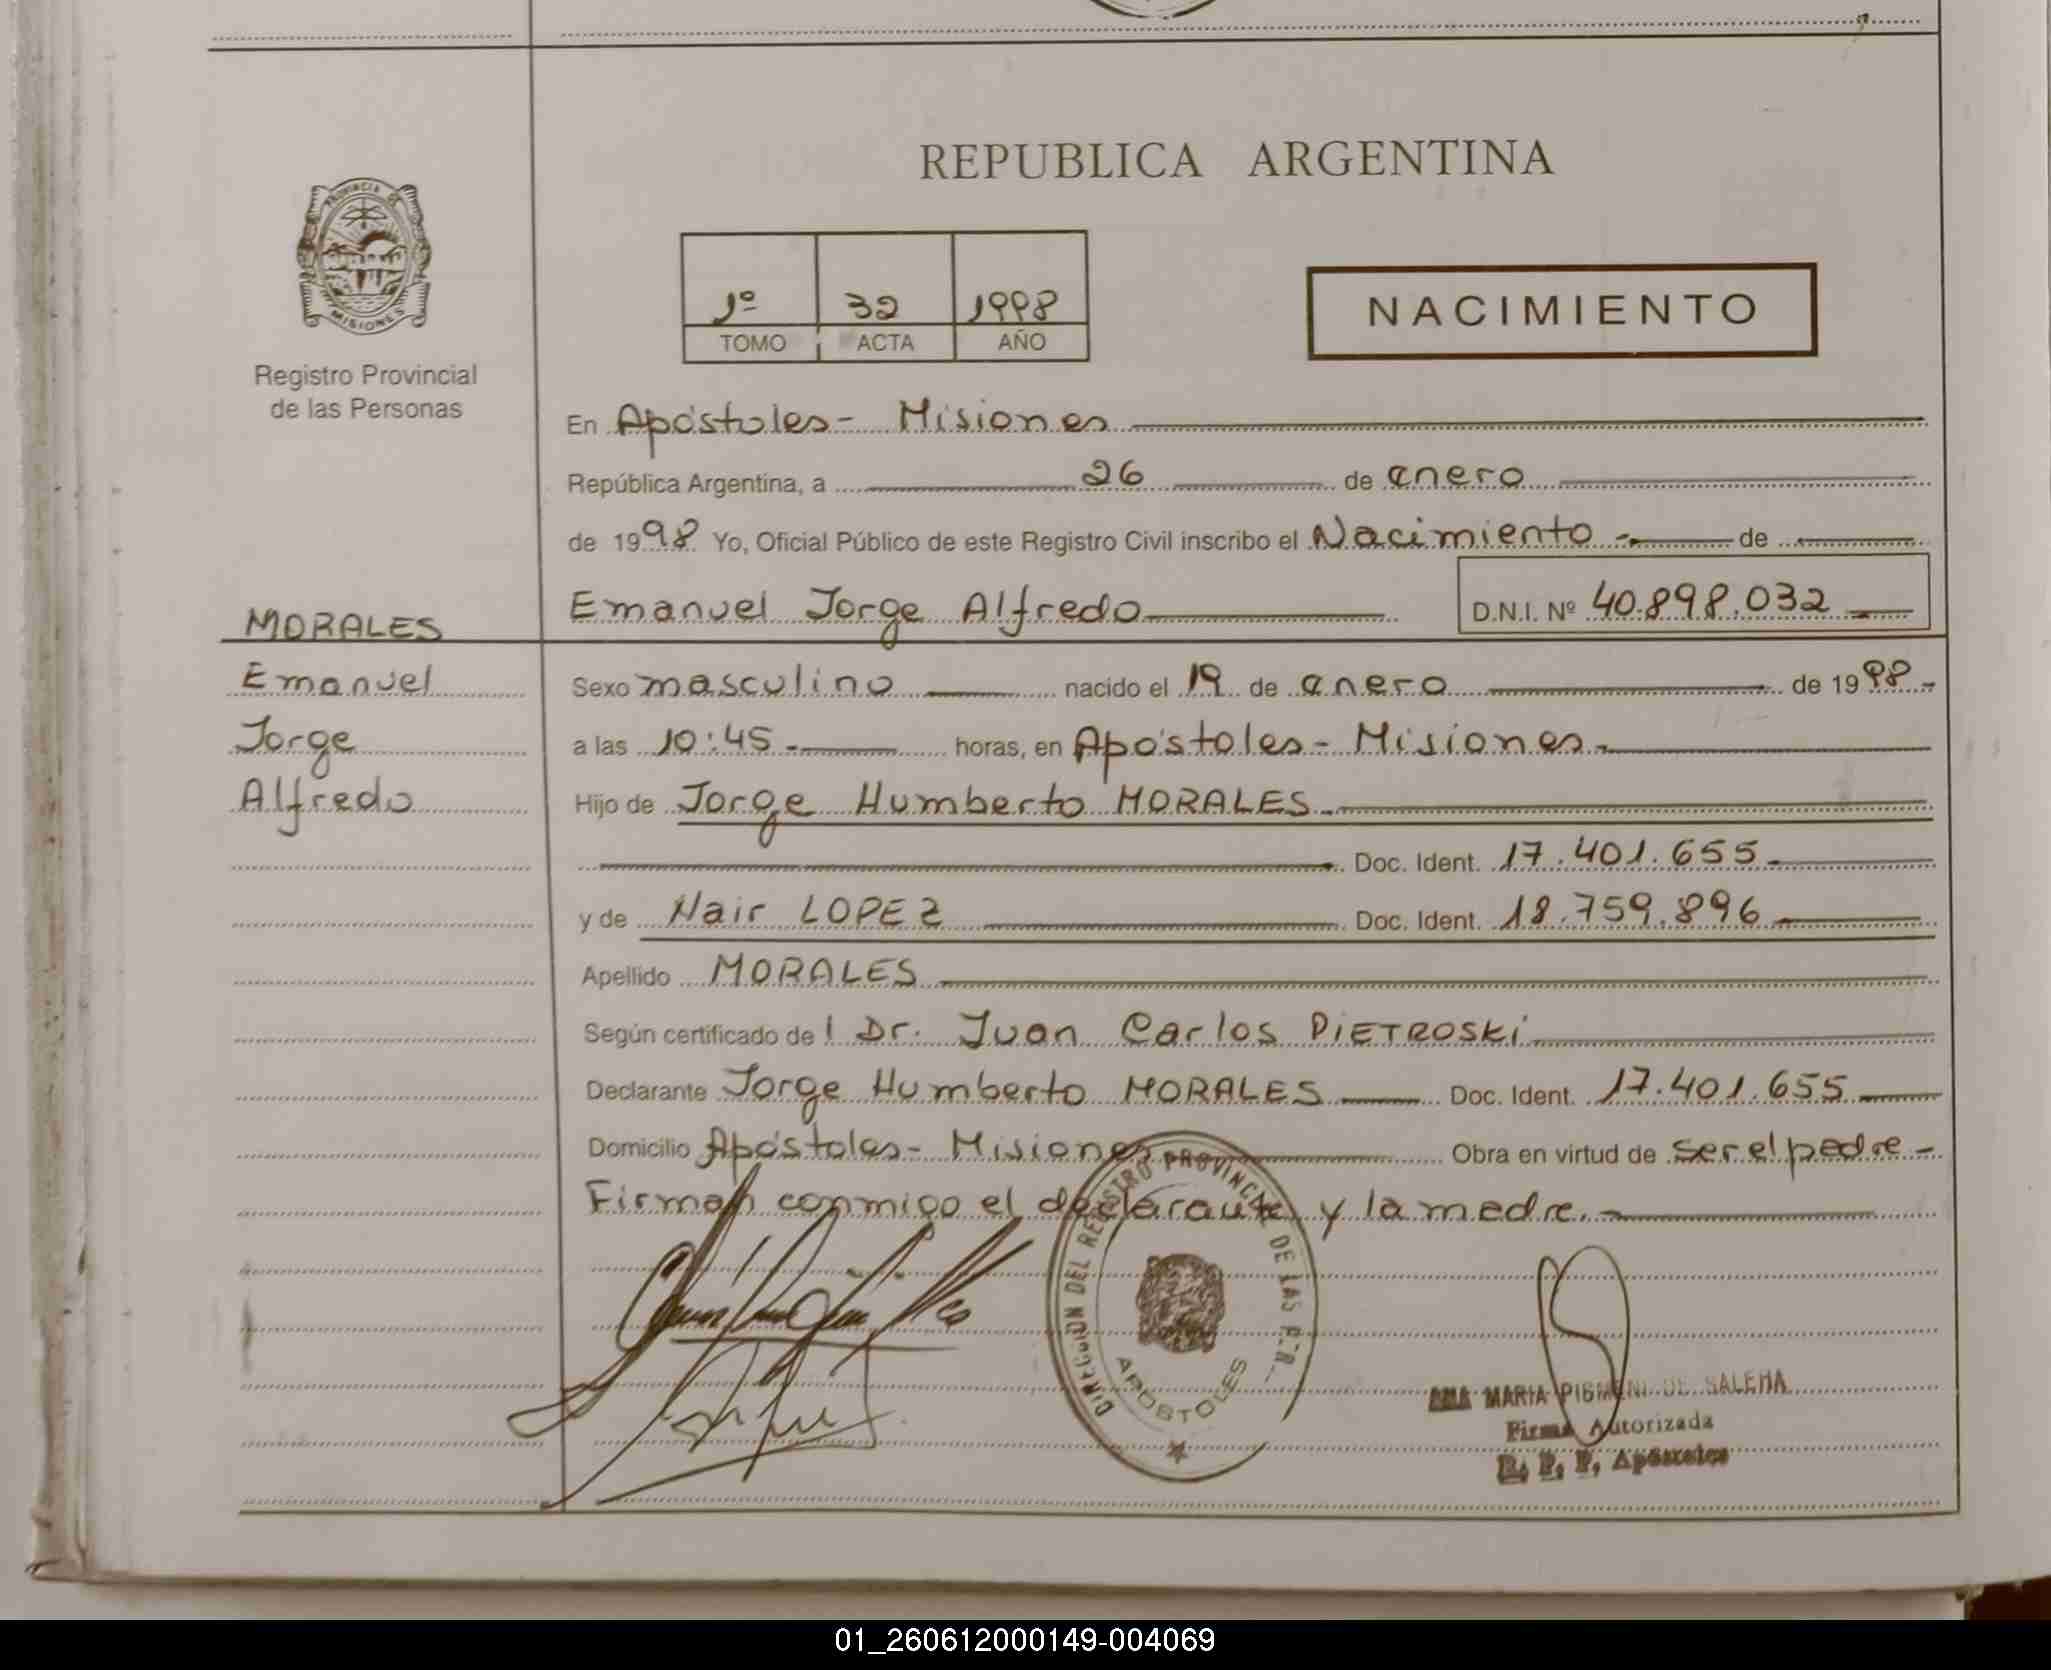 REPUBLICA ARGENTINA
PROVINCIA DE
MISIONES
Registro Provincial
de las Personas
1º 32 1998
TOMO ACTA AÑO
NACIMIENTO
En Apóstoles - Misiones
República Argentina, a 26 de enero
de 1998 Yo, Oficial Público de este Registro Civil inscribo el Nacimiento de
Emanuel Jorge Alfredo D.N.I. Nº 40.898.032
MORALES
Emanuel
Jorge
Alfredo
Sexo masculino nacido el 19 de enero de 1998
a las 10:45 horas, en Apóstoles - Misiones
Hijo de Jorge Humberto MORALES
Doc. Ident. 17.401.655
y de Nair LOPEZ Doc. Ident. 18.759.896
Apellido MORALES
Según certificado del Dr. Juan Carlos PIETROSKI
Declarante Jorge Humberto MORALES Doc. Ident. 17.401.655
Domicilio Apóstoles - Misiones Obra en virtud de ser el padre
Firman conmigo el declarante y la madre.
DIRECCION DEL REGISTRO PROVINCIAL DE LAS P.
APOSTOLES
ANA MARIA DE SALEHA
Firma Autorizada
R. P. P. Apóstoles
01_260612000149-004069